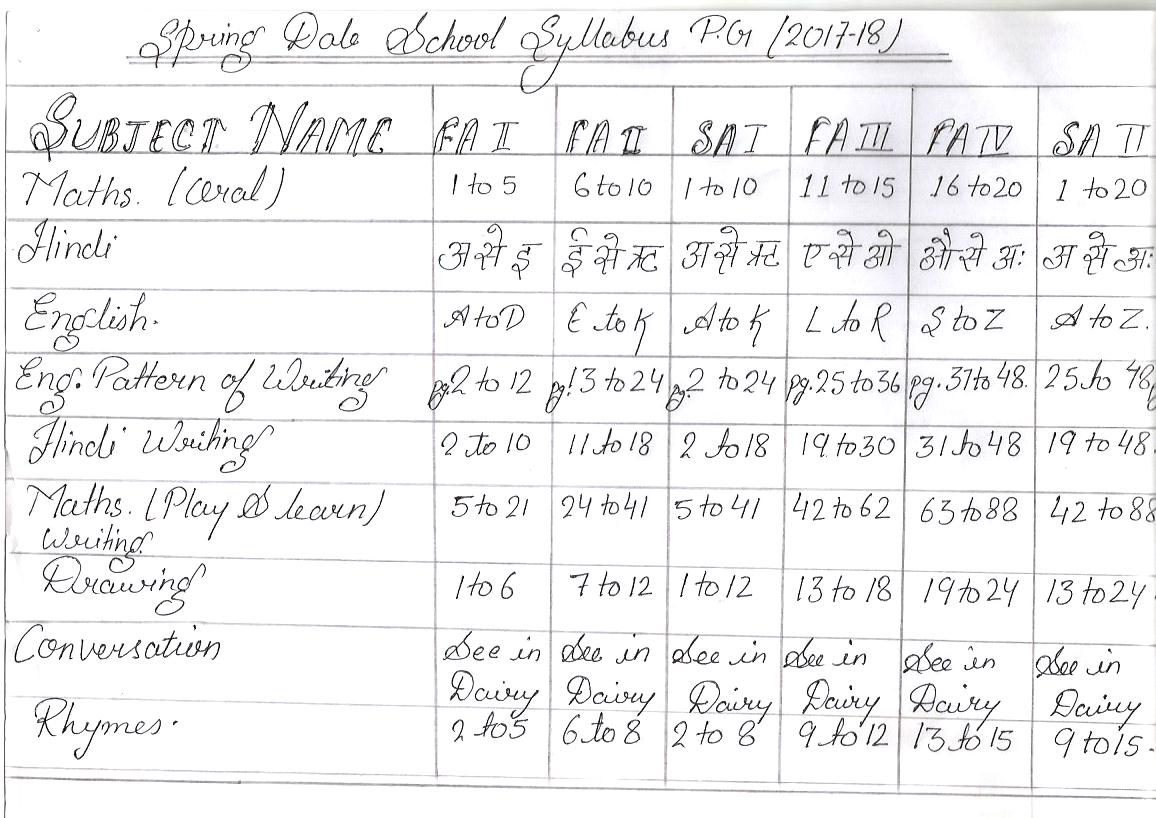 Spring Dale School Syllabus P.G (2017-18)
SUBJECT NAME FA I FA II SA I FA III FA IV SA II
Maths. (Oral) 1 to 5 6 to 10 1 to 10 11 to 15 16 to 20 1 to 20
Hindi अ से इ ई से ऋ अ से ऋ ए से ओ औ से अः अ से अः
English. A to D E to K A to K L to R S to Z A to Z.
Eng. Pattern of Writing pg.2 to 12 pg.13 to 24 pg.2 to 24 pg.25 to 36 pg.37 to 48. 25 to 48
Hindi Writing 2 to 10 11 to 18 2 to 18 19 to 30 31 to 48 19 to 48.
Maths. (Play & learn) 5 to 21 24 to 41 5 to 41 42 to 62 63 to 88 42 to 88
Writing.
Drawing 1 to 6 7 to 12 1 to 12 13 to 18 19 to 24 13 to 24.
Conversation See in See in See in See in See in See in
Dairy Dairy Dairy Dairy Dairy Dairy
Rhymes. 2 to 5 6 to 8 2 to 8 9 to 12 13 to 15 9 to 15.